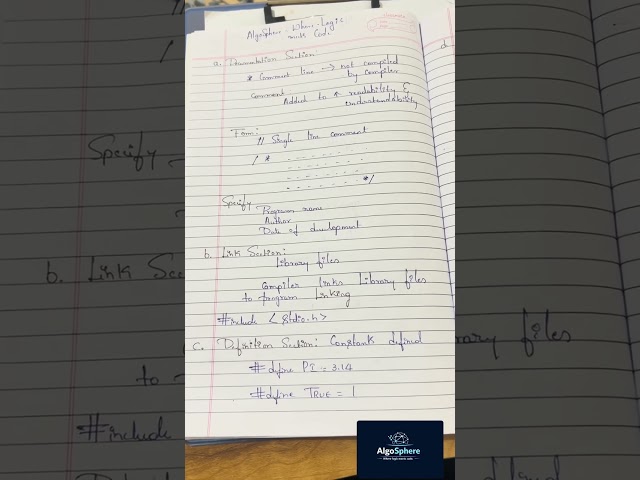 AlgoSphere Where Logic
meets Code.
a. Documentation Section:
* Comment line → not compiled
by compiler
Comment
Added to ↑ readability &
understandability
Form:
// Single line comment
/* - - - - - -
- - - - - -
- - - - - -
- - - - - - */
Specify
Program name
Author
Date of development
b. Link Section:
Library files
Compiler links Library files
to program linking
#include <stdio.h>
c. Definition Section: Constants defined
#define PI = 3.14
#define TRUE = 1
d
Specify
b. Link Sec
to
#include
rary files
AlgoSphere
Where logic meets code.